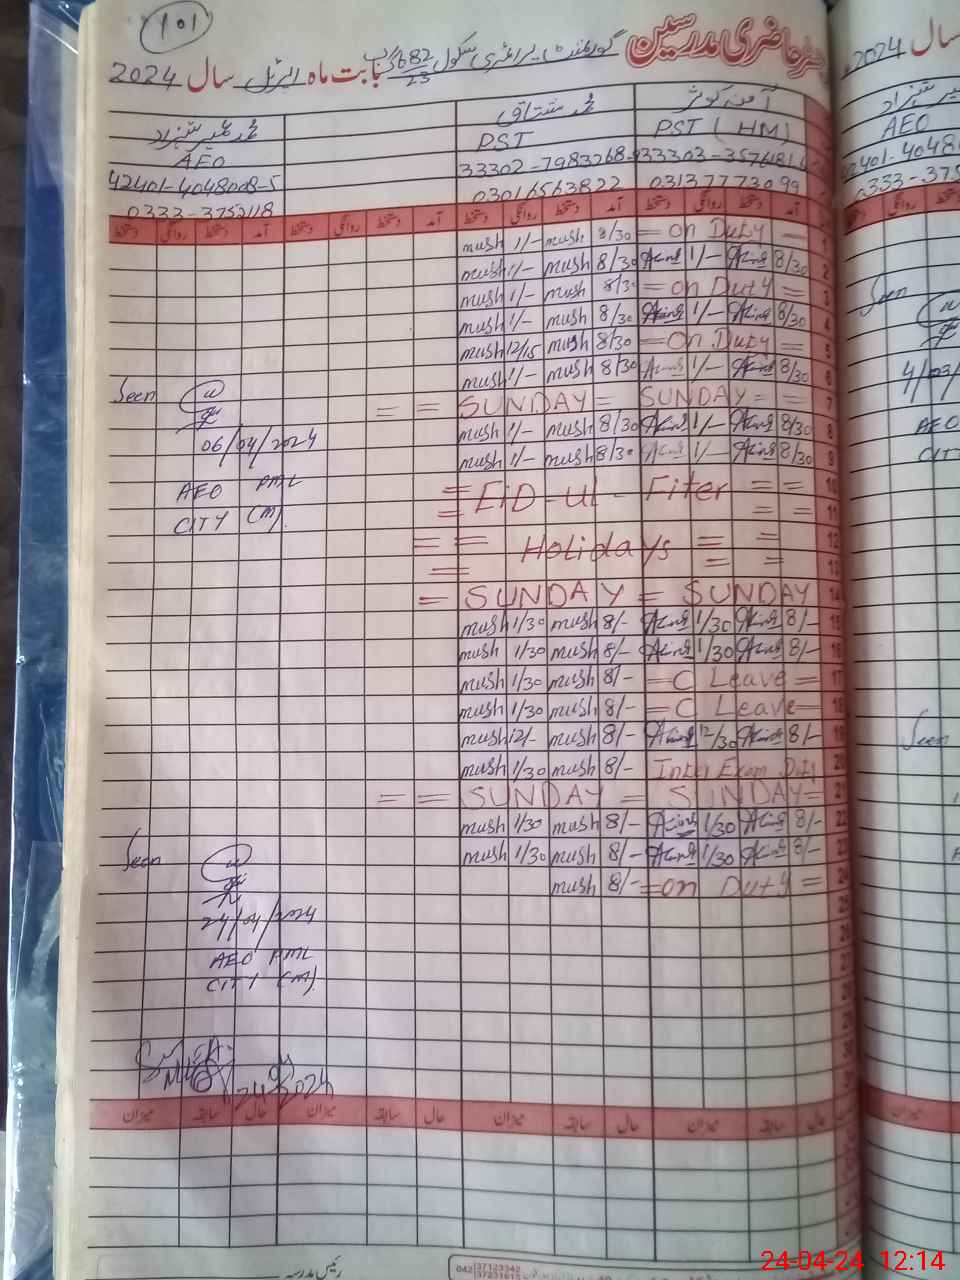 101
حاضری مدرسین
گورنمنٹ پرائمری سکول 682/23 گ ب بابت ماہ اپریل سال 2024
آمنہ کوثر محمد مشتاق
PST (HM) PST AEO
33302-7983268- 33303-3576481 42401-4048008-5
03137773099 03016563822 0333-3752118
آمد دستخط روانگی دستخط آمد دستخط روانگی دستخط آمد دستخط روانگی دستخط
1 = On Duty = 8/30 mush 1/- mush
2 8/30 1/- 8/30 mush 1/- mush
3 = on Duty = 8/30 mush 1/- mush
4 8/30 1/- 8/30 mush 1/- mush
5 = On Duty = 8/30 mush 12/15 mush
6 8/30 1/- 8/30 mush 1/- mush
Seen
7 = = SUNDAY = SUNDAY = =
8 8/30 1/- 8/30 mush 1/- mush
06/04/2024
9 8/30 1/- 8/30 mush 1/- mush
10 = EiD-ul-Fiter = =
AEO PML
11 = = =
CITY (M)
12 = = Holidays = =
13 = = =
14 = SUNDAY = SUNDAY
15 8/- 1/30 8/- mush 1/30 mush
16 8/- 1/30 8/- mush 1/30 mush
17 = C Leave = 8/- mush 1/30 mush
18 = C Leave = 8/- mush 1/30 mush
19 8/- 12/30 8/- mush 12/- mush
20 Inter Exam Duty 8/- mush 1/30 mush
21 = = SUNDAY = SUNDAY =
22 8/- 1/30 8/- mush 1/30 mush
23 8/- 1/30 8/- mush 1/30 mush
Seen
24 = on Duty = 8/- mush
25
24/04/2024
AEO PML
CITY (M)
حال سابقہ میزان حال سابقہ میزان حال سابقہ میزان
رئیس مدرسہ
042 37123342
37231615
24-04-24 12:14
سال 2024
AEO
0333-375
روانگی دستخط
Seen
4/03/
AEO
CIT
Seen
میزان